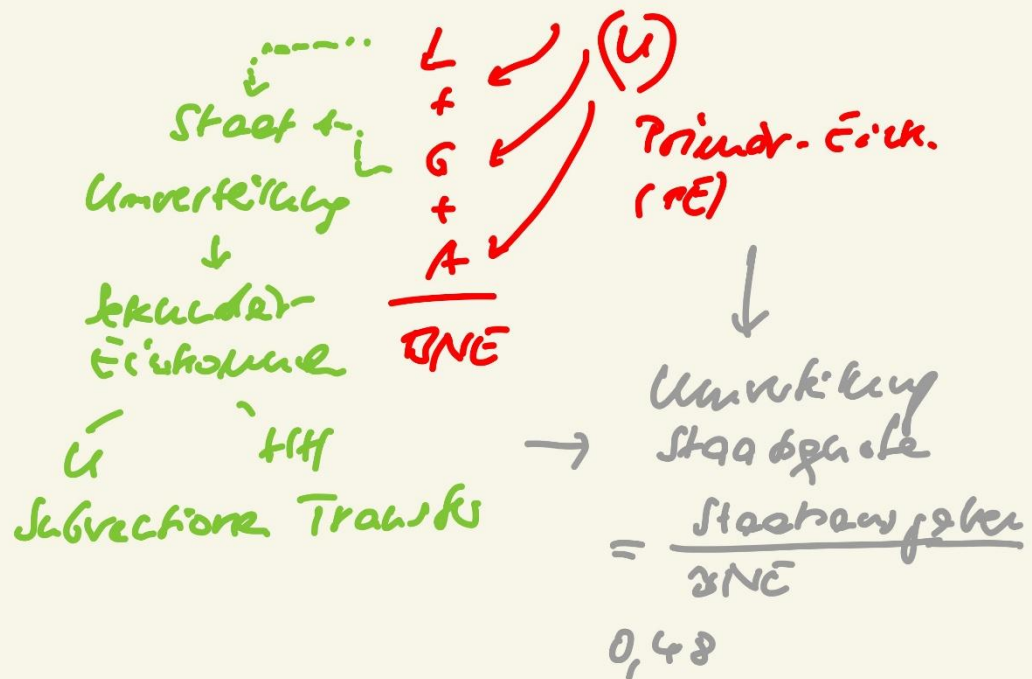 L
+
G
+
A
BNE
(U)
Primär-Eink.
(PE)
Staat
Umverteilung
Sekundär-
Einkommen
U
HH
Subventionen Transfers
Umverteilung
Staatsquote
= Staatsausgaben
BNE
0,48